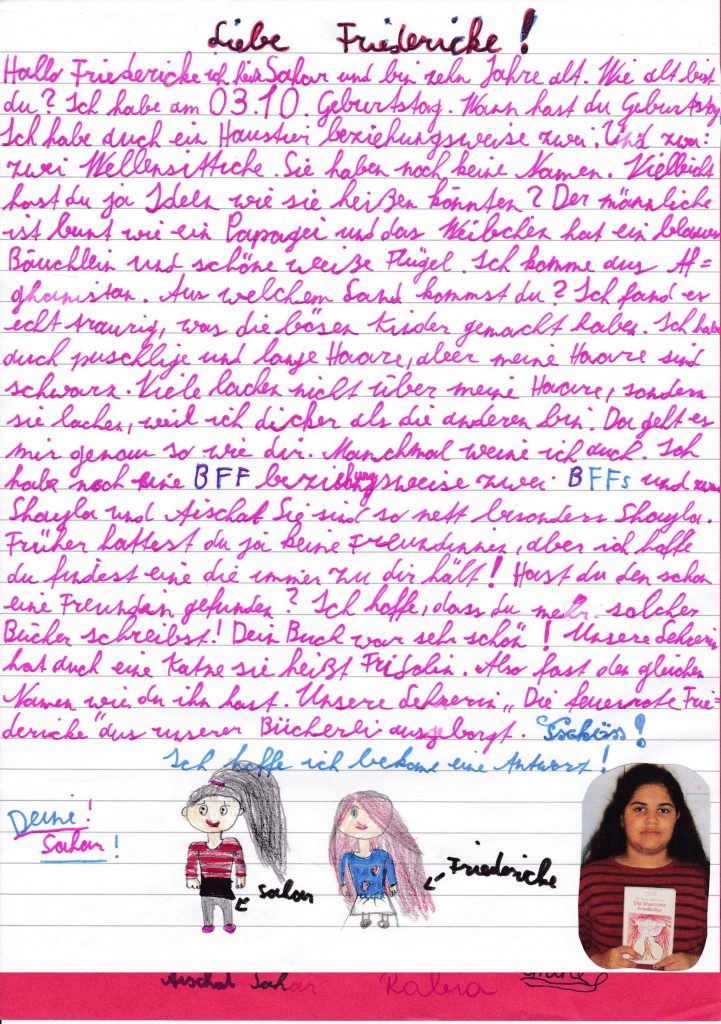 Liebe Friedericke!
Hallo Friedericke ich bin Sahar und bin zehn Jahre alt. Wie alt bist
du? Ich habe am 03.10. Geburtstag. Wann hast du Geburtstag
Ich habe auch ein Haustier beziehungsweise zwei. Und zwar:
zwei Wellensittiche. Sie haben noch keine Namen. Vielleicht
hast du ja Ideen wie sie heißen könnten? Der männliche
ist bunt wie ein Papagei und das Weibchen hat ein blaues
Bäuchlein und schöne weiße Flügel. Ich komme aus Af=
ghanistan. Aus welchem Land kommst du? Ich fand es
echt traurig, was die bösen Kinder gemacht haben. Ich habe
auch puschlige und lange Haare, aber meine Haare sind
schwarz. Viele lachen nicht über meine Haare, sondern
sie lachen, weil ich dicker als die anderen bin. Da geht es
mir genau so wie dir. Manchmal weine ich auch. Ich
habe noch eine BFF beziehungsweise zwei BFFs und zwar
Shayla und Aischat Sie sind so nett besonders Shayla.
Früher hattest du ja keine Freundinnen, aber ich hoffe
du findest eine die immer zu dir hält! Hast du den schon
eine Freundin gefunden? Ich hoffe, dass du mehr solcher
Bücher schreibst! Dein Buch war sehr schön! Unsere Lehrerin
hat auch eine Katze sie heißt Frisolin. Also fast den gleichen
Namen wie du ihn hast. Unsere Lehrerin „Die feuerrote Frie-
dericke" aus unserer Bücherei ausgeborgt. Tschüss!
Ich hoffe ich bekome eine Antwort!
Deine!
Sahar!
Sahar
Friedericke
Die feuerrote
Friederike
Aischat Sahar Rabia